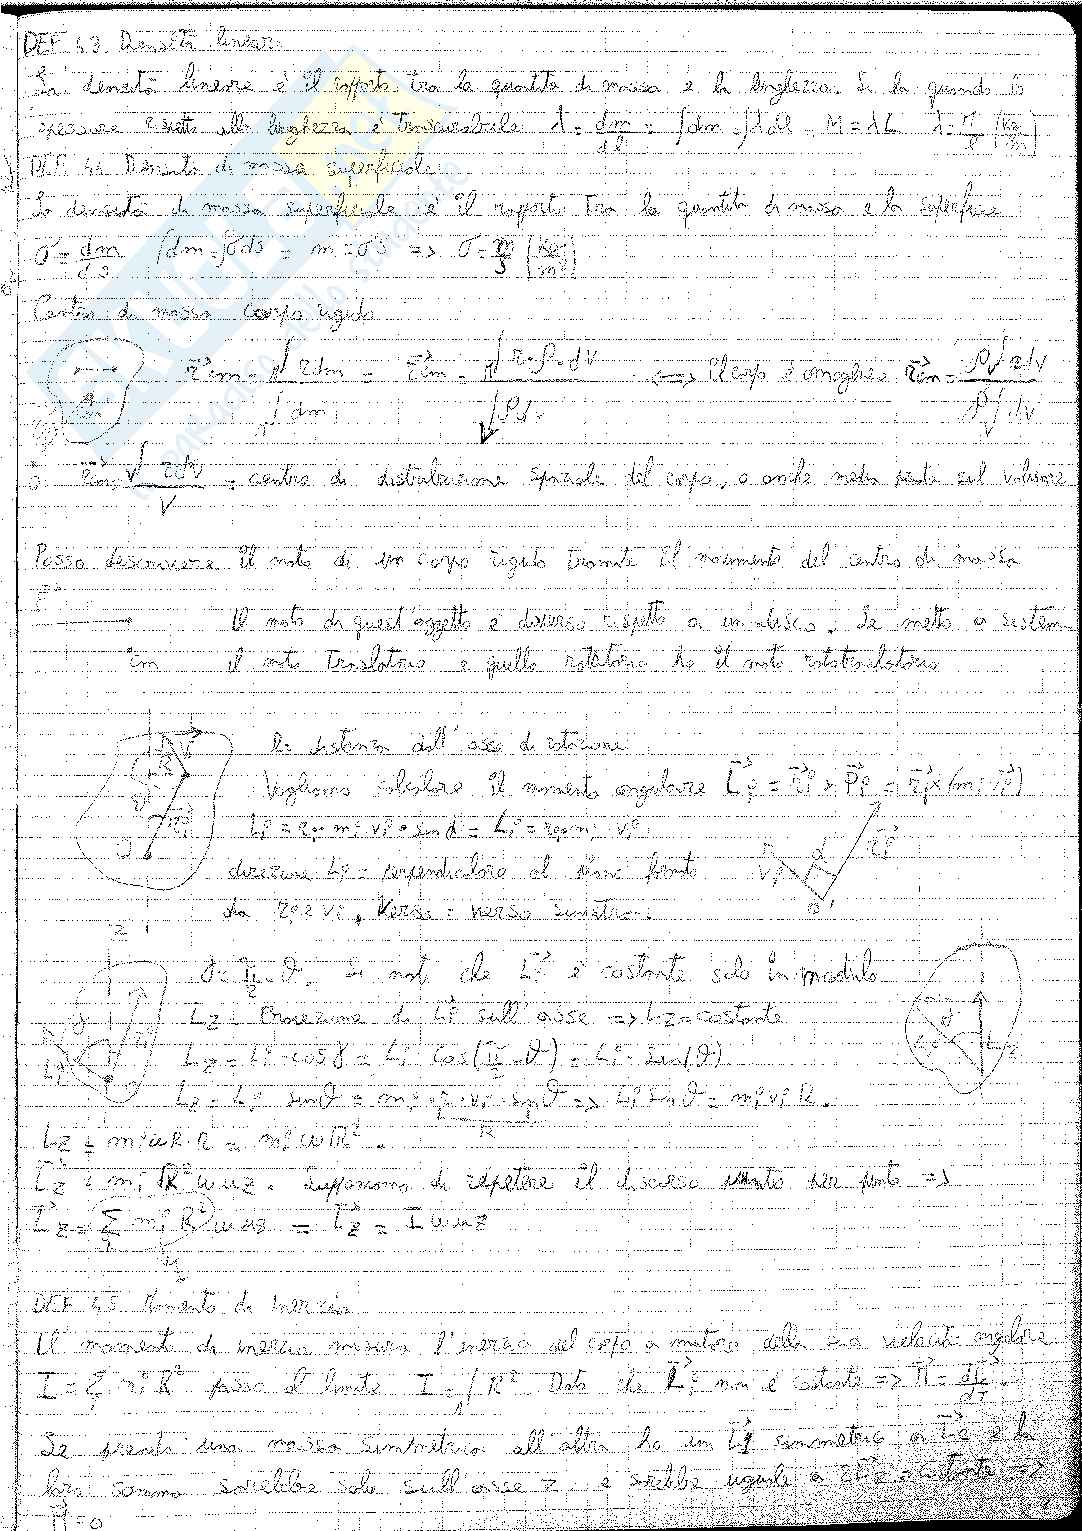 DEF 43 Densità lineare
La densità lineare è il rapporto tra la quantità di massa e la lunghezza. Si ha quando lo
spessore rispetto alla lunghezza è trascurabile λ = dm/dl = ∫dm = ∫λdl = M = λL λ = M/l [kg/m]
DEF 44 Densità di massa superficiale
La densità di massa superficiale è il rapporto tra la quantità di massa e la superficie
σ = dm/ds ∫dm = ∫σds = m = σS => σ = m/S [kg/m²]
Centro di massa corpo rigido
rcm = ∫rdm / ∫dm = rcm = ∫r·ρ·dV / ∫ρdv <=> Il corpo è omogeneo rcm = ρ∫rdv / ρ∫dv
rcm = ∫rdV / V = centro di distribuzione spaziale del corpo, o anche media pesata sul volume
Posso descrivere il moto di un corpo rigido tramite il movimento del centro di massa
Il moto di quest'oggetto è diverso rispetto a un disco. Se metto a sistema
cm il moto traslatorio e quello rotatorio ho il moto rototraslatorio
R = distanza dall'asse di rotazione
Vogliamo calcolare il momento angolare Li = ri × Pi = ri × (mi vi)
Li = ri mi vi sin α = Li = ri mi vi
direzione Li = perpendicolare al piano formato
da ri e vi, Verso = verso sinistro.
γ = π/2 - θ. Si noti che Li è costante solo in modulo
Lz = Proiezione di Li sull'asse => Lz = costante
Lz = Li · cos γ = Li cos(π/2 - θ) = Li · sin(θ)
Lz = Li sin θ = mi · ri · vi · sin θ => Li sin θ = mi vi R.
Lz = mi ωR · R = mi ω R².
Lz = mi R² ω uz. Supponiamo di ripetere il discorso punto per punto =>
Lz = (Σ mi R²) ω uz = Lz = I ω uz
DEF 45 Momento di Inerzia
Il momento di inerzia misura l'inerzia del corpo a mutare della sua velocità angolare
I = Σ mi R² passo al limite I = ∫R² Dato che Li non è costante => M = dL/dt
Se prendi una massa simmetrica all'altra ha un L1 simmetrico a L2 e la
loro somma sarebbe solo sull'asse z e sarebbe uguale a 2Lz = costante =>
M = 0